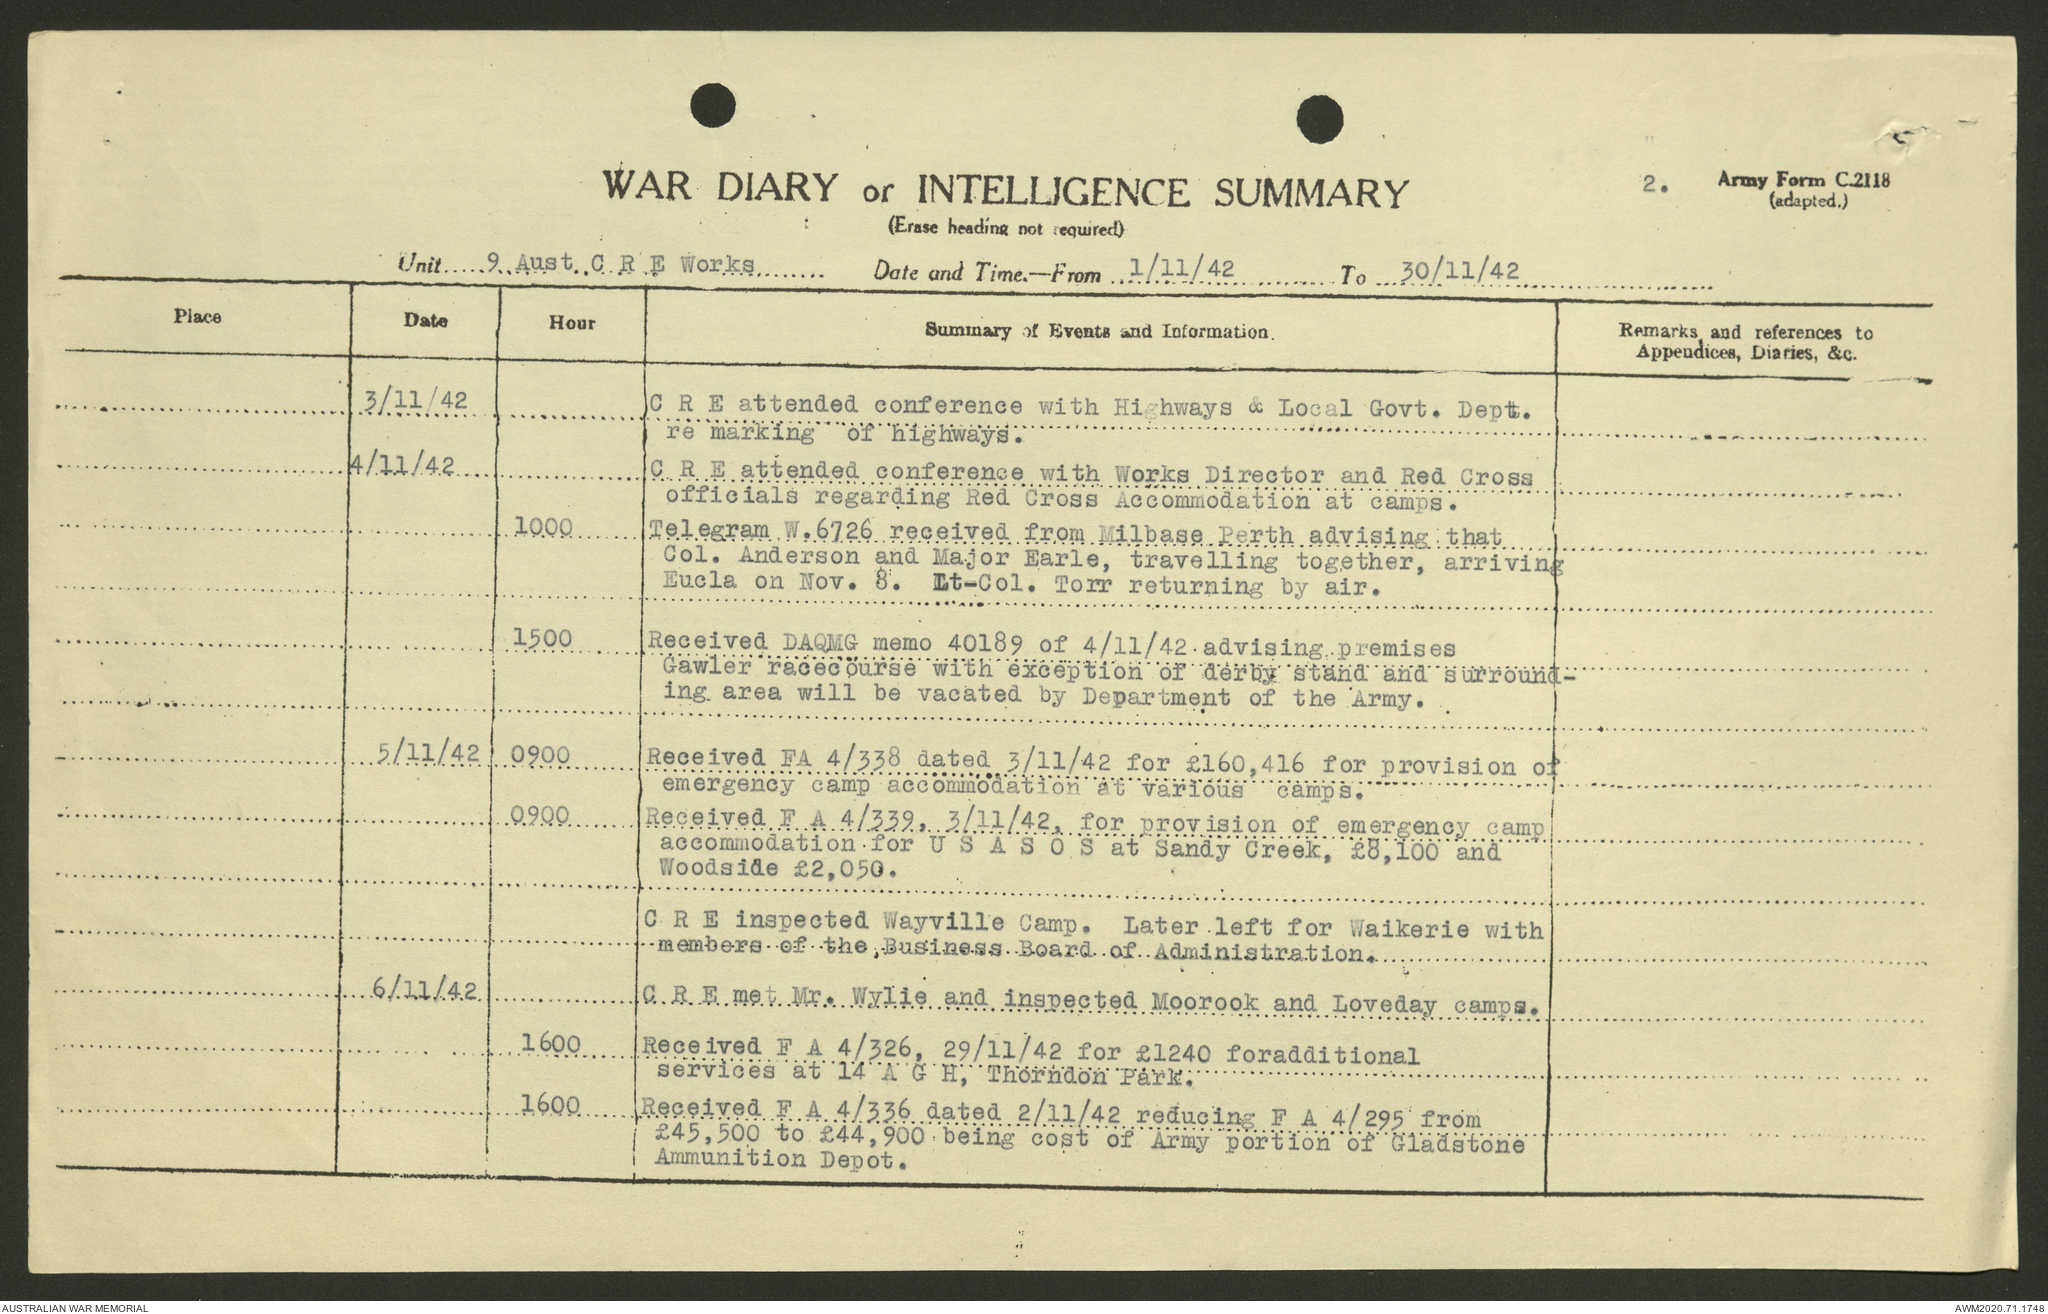 WAR DIARY or INTELLIGENCE SUMMARY
2.
Army Form C.2118
(adapted.)
(Erase heading not required)
Unit 9 Aust C R E Works Date and Time.—From 1/11/42 To 30/11/42
Place Date Hour Summary of Events and Information. Remarks and references to
Appendices, Diaries, &c.
3/11/42 C R E attended conference with Highways & Local Govt. Dept.
re marking of highways.
4/11/42 C R E attended conference with Works Director and Red Cross
officials regarding Red Cross Accommodation at camps.
1000 Telegram W.6726 received from Milbase Perth advising that
Col. Anderson and Major Earle, travelling together, arriving
Eucla on Nov. 8. Lt-Col. Torr returning by air.
1500 Received DAQMG memo 40189 of 4/11/42 advising premises
Gawler racecourse with exception of derby stand and surround-
ing area will be vacated by Department of the Army.
5/11/42 0900 Received FA 4/338 dated 3/11/42 for £160,416 for provision of
emergency camp accommodation at various camps.
0900 Received F A 4/339, 3/11/42, for provision of emergency camp
accommodation for U S A S O S at Sandy Creek, £8,100 and
Woodside £2,050.
C R E inspected Wayville Camp. Later left for Waikerie with
members of the Business Board of Administration.
6/11/42 C R E met Mr. Wylie and inspected Moorook and Loveday camps.
1600 Received F A 4/326, 29/11/42 for £1240 foradditional
services at 14 A G H, Thorndon Park.
1600 Received F A 4/336 dated 2/11/42 reducing F A 4/295 from
£45,500 to £44,900 being cost of Army portion of Gladstone
Ammunition Depot.
AUSTRALIAN WAR MEMORIAL
AWM2020.71.1748